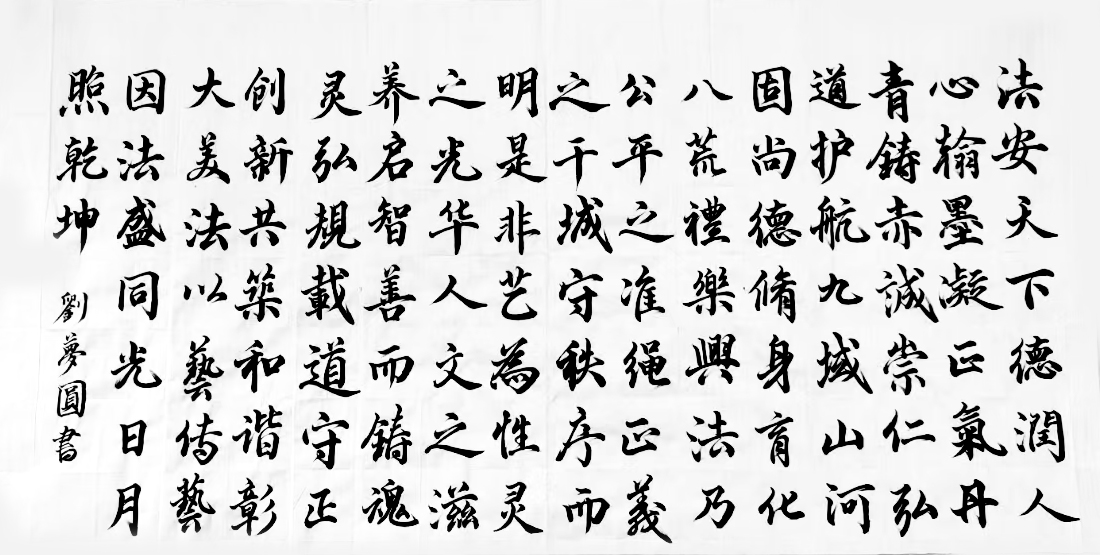 法安天下德润人
心翰墨凝正氣丹
青鋳赤誠崇仁弘
道护航九域山河
固尚德脩身育化
八荒禮樂興法乃
公平之准绳正義
之干城守秩序而
明是非艺為性灵
之光华人文之滋
养启智善而鋳魂
灵弘規載道守正
创新共築和谐彰
大美法以藝传藝
因法盛同光日月
照乾坤
劉夢圓書